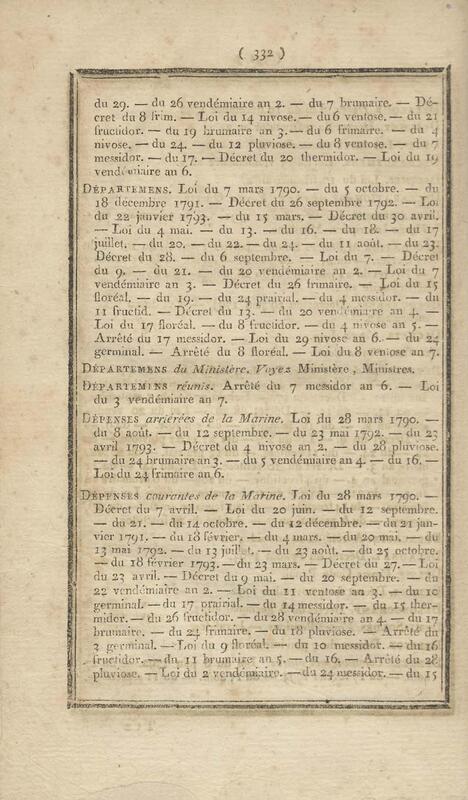 ( 332 )
du 29. — du 26 vendémiaire an 2. — du 7 brumaire. — Dé-
cret du 8 frim. — Loi du 14 nivose. — du 6 ventose. — du 21
fructidor. — du 19 brumaire an 3. — du 6 frimaire. — du 4
nivose. — du 24. — du 12 pluviose. — du 8 ventose. — du 7
messidor. — du 17. — Décret du 20 thermidor. — Loi du 19
vendémiaire an 6.
DÉPARTEMENS. Loi du 7 mars 1790. — du 5 octobre. — du
18 decembre 1791. — Décret du 26 septembre 1792. — Loi
du 22 janvier 1793. — du 15 mars. — Décret du 30 avril.
— Loi du 4 mai. — du 13. — du 16. — du 18. — du 17
juillet. — du 20. — du 22. — du 24. — du 11 août. — du 23.
Décret du 28. — du 6 septembre. — Loi du 7. — Décret
du 9. — du 21. — du 20 vendémiaire an 2. — Loi du 7
vendémiaire an 3. — Décret du 26 frimaire. — Loi du 15
floréal. — du 19. — du 24 prairial. — du 4 messidor. — du
11 fructid. — Décret du 13. — du 20 vendémiaire an 4. —
Loi du 17 floréal. — du 8 fructidor. — du 4 nivose an 5. —
Arrêté du 17 messidor. — Loi du 29 nivose an 6. — du 24
germinal. — Arrêté du 8 floréal. — Loi du 8 ventose an 7.
DÉPARTEMENS du Ministère. Voyez Ministère, Ministres.
DÉPARTEMENS réunis. Arrêté du 7 messidor an 6. — Loi
du 3 vendémiaire an 7.
DÉPENSES arriérées de la Marine. Loi du 28 mars 1790. —
du 8 août. — du 12 septembre. — du 23 mai 1792. — du 23
avril 1793. — Décret du 4 nivose an 2. — du 28 pluviose.
— du 24 brumaire an 3. — du 5 vendémiaire an 4. — du 16. —
Loi du 24 frimaire an 6.
DÉPENSES courantes de la Marine. Loi du 28 mars 1790. —
Décret du 7 avril. — Loi du 20 juin. — du 12 septembre.
— du 21. — du 14 octobre. — du 12 décembre. — du 21 jan-
vier 1791. — du 18 février. — du 4 mars. — du 20 mai. — du
13 mai 1792. — du 13 juillet. — du 23 août. — du 25 octobre.
— du 18 février 1793. — du 23 mars. — Décret du 27. — Loi
du 23 avril. — Décret du 9 mai. — du 20 septembre. — du
22 vendémiaire an 2. — Loi du 11 ventose an 3. — du 10
germinal. — du 17 prairial. — du 14 messidor. — du 15 ther-
midor. — du 26 fructidor. — du 28 vendémiaire an 4. — du 17
brumaire. — du 24 frimaire. — du 18 pluviose. — Arrêté du
3 germinal. — Loi du 9 floréal. — du 10 messidor. — du 16
fructidor. — du 11 brumaire an 5. — du 16. — Arrêté du 28
pluviose. — Loi du 2 vendémiaire. — du 24 messidor. — du 15